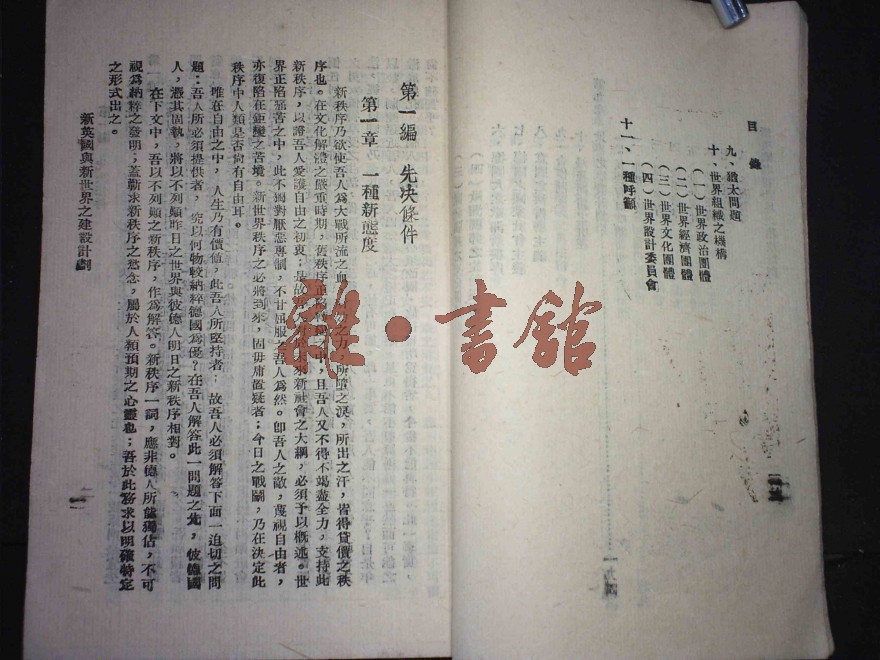 目錄
九、猶太問題
十、世界組織之機構
(一)世界政治團體
(二)世界經濟團體
(三)世界文化團體
(四)世界設計委員會
十一、一種呼籲
第一編 先決條件
第一章 一種新態度
新秩序乃欲使吾人為大戰所流之血,所 之力,所墮之淚,所出之汗,皆得貸價之秩
序也。在文化解體之嚴重時期,舊秩序正 中,且吾人又不得不竭盡全力,支持此
新秩序,以謗吾人愛護自由之初衷;是故 來新社會之大綱,必須予以概述。世
界正陷艱苦之中,此不獨對厭惡專制,不甘屈服之吾人為然。卽吾人之敵,蔑視自由者,
亦復陷在 之苦境。新世界秩序之必將到來,固毋庸置疑者;今日之戰鬬,乃在決定此
秩序中人類是否尙有自由耳。
唯在自由之中,人生乃有價値,此吾人所堅持者;故吾人必須解答下面一迫切之問
題:吾人所必須提供者,究以何物較納粹德國為優?在吾人解答此一問題之先,彼德國
人,憑其固執,將以不列顛昨日之世界與彼德人明日之新秩序相對。
在下文中,吾以不列顛之新秩序,作為解答。新秩序一詞,應非德人所能獨佔,不可
視為納粹之發明;蓋勤求新秩序之愁念,屬於人類預期之心靈也;吾於此務求以明確特定
之形式出之。
新英國與新世界之建設計劃
雜·書館